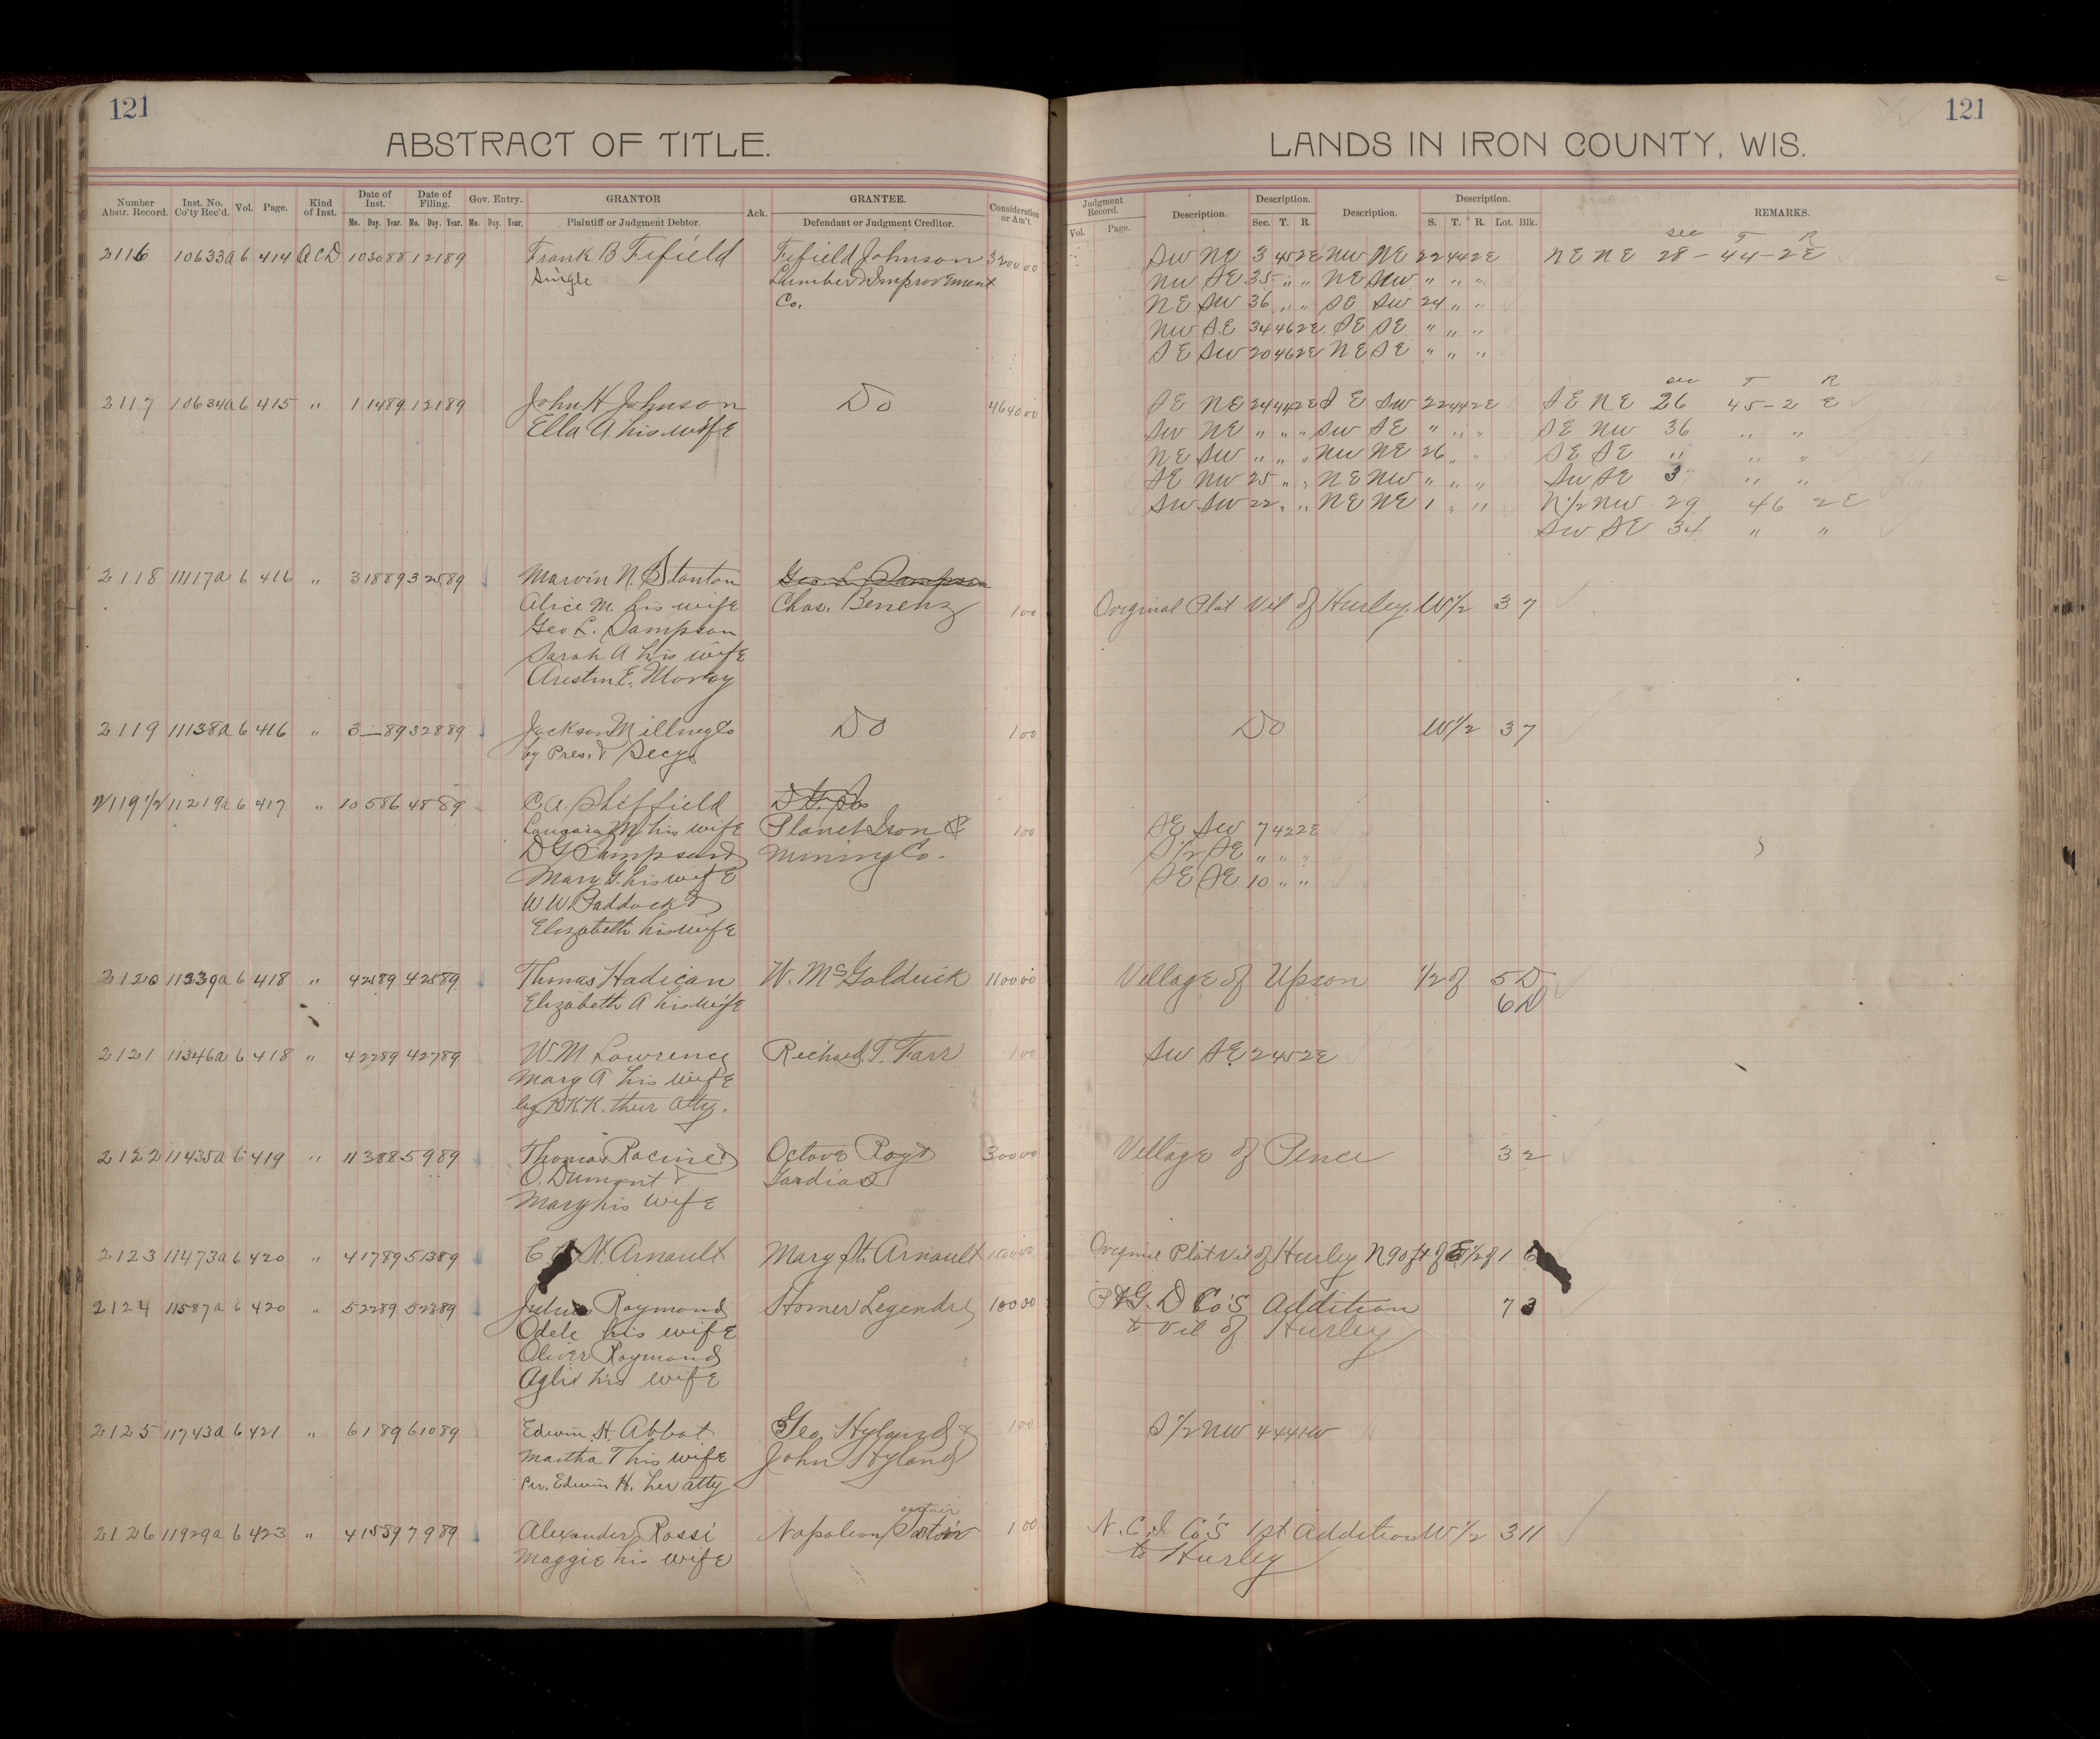 121
ABSTRACT OF TITLE.
Number Abstr. Record. Inst. No. Co'ty Rec'd. Vol. Page. Kind of Inst. Date of Inst. Date of Filing. Gov. Entry. GRANTOR Ack. GRANTEE. Consideration or Am't.
Mo. Day. Year. Mo. Day. Year. Mo. Day. Year. Plaintiff or Judgment Debtor. Defendant or Judgment Creditor.
2116 10633a 6 414 A C D 10 30 88 1 21 89 Frank B Fifield Fifield Johnson 3200 00
Single Lumber & Improvement
Co.
2117 10634a 6 415 " 1 14 89 1 21 89 John H Johnson Do 4640 00
Ella A his wife
2118 11117a 6 416 " 3 18 89 3 25 89 Marvin N. Stanton Geo. L. Sampson
Alice M. his wife Chas. Benenz 1 00
Geo L. Sampson
Sarah A his wife
Austin E.
2119 11138a 6 416 " 3 — 89 3 28 89 Jackson Milling Co Do 1 00
by Pres. & Secy
2119 1/2 11219a 6 417 " 10 5 86 4 8 89 C. A. Sheffield
M his wife Planet Iron & 1 00
D G Sampson & Mining Co.
Mary G. his wife
W. W. Paddock &
Elizabeth his wife
2120 11339a 6 418 " 4 25 89 4 25 89 Thomas Hadican W. McGoldrick 1100 00
Elizabeth A his wife
2121 11346a 6 418 " 4 22 89 4 27 89 W. M Lawrence Richard T. Farr 1 00
Mary A his wife
by K.K. their atty.
2122 11435a 6 419 " 11 3 88 5 9 89 Thomas Racine & Octave Roy & 300 00
O. Dumont &
Mary his wife
2123 11473a 6 420 " 4 17 89 5 13 89 St. Arnault Mary St. Arnault
2124 11587a 6 420 " 5 22 89 5 23 89 Julius Raymond Homer Legendre 100 00
Odele his wife
Oliver Raymond
his wife
2125 11743a 6 421 " 6 1 89 6 10 89 Edwin H. Abbot Geo. Hyland & 1 00
Martha T his wife John Hyland
Per. Edwin H. her atty
2126 11929a 6 423 " 4 15 89 7 9 89 Alexander Rossi Napoleon 1 00
Maggie his wife
121
LANDS IN IRON COUNTY, WIS.
Judgment Record. Description. Description. Description. Description. REMARKS.
Vol. Page. Sec. T. R. S. T. R. Lot. Blk.
Sec T R
SW NE 3 45 2E NW NE 22 44 2E NE NE 28 - 44 - 2E
NW SE 35 " " NE NW " " "
NE SW 36 " " SE SW 24 " "
NW SE 34 46 2E SE SE " " "
SE SW 20 46 2E NE SE " " "
Sec T R
SE NE 24 44 2E SE SW 22 44 2E SE NE 26 45 - 2 E
SW NE " " " SW SE " " " SE NW 36 " "
NE SW " " " NW NE 26 " " SE SE " " "
SE NW 25 " " NE NW " " " SW SE 3 " "
SW SW 22 " " NE NE 1 " " N 1/2 NW 29 46 2E
SW SE 34 " "
Original Plat Vil of Hurley. W 1/2 3 7
Do W 1/2 3 7
SE SW 7 42 2E
S 1/2 SE " " "
SE SE 10 " "
Village of Upson 1/2 of 5 D
6 D
SW SE 2 45 2E
Village of Pence 3 2
Original Plat Vil of Hurley N 90 ft of E 1/2 of 1 6
Co's Addition 7 3
to Vil of Hurley
S 1/2 NW 4 44 1W
N. C. I Co's 1st Addition W 1/2 3 11
to Hurley